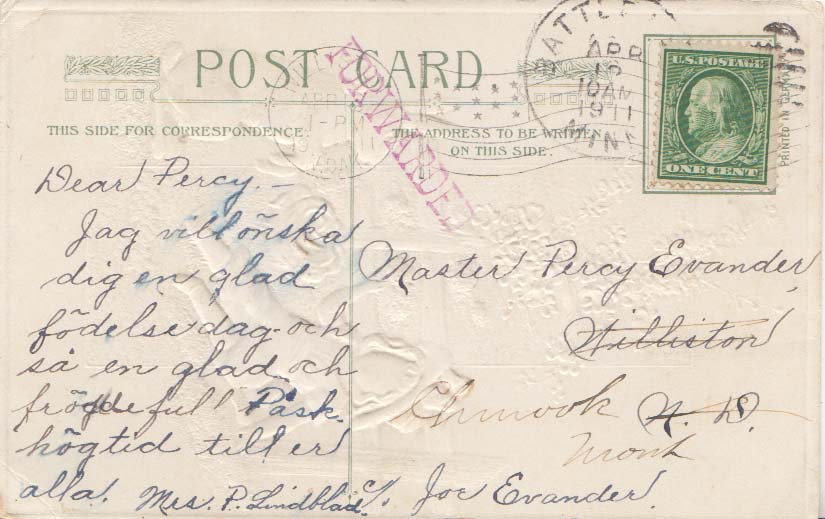 POST CARD
FORWARDED
THIS SIDE FOR CORRESPONDENCE.
THE ADDRESS TO BE WRITTEN
ON THIS SIDE.
APR
1-PM
APR
10 AM
1911
MINN
U.S. POSTAGE
ONE CENT
PRINTED IN GERMANY
Dear Percy.—
Jag vill önska
dig en glad
födelsedag och
så en glad och
fröjdefull Påsk-
högtid till er
alla. Mrs. P. Lindblad.
Master Percy Evander
Williston
Chinook N. D.
Mont
c/o Joe Evander.